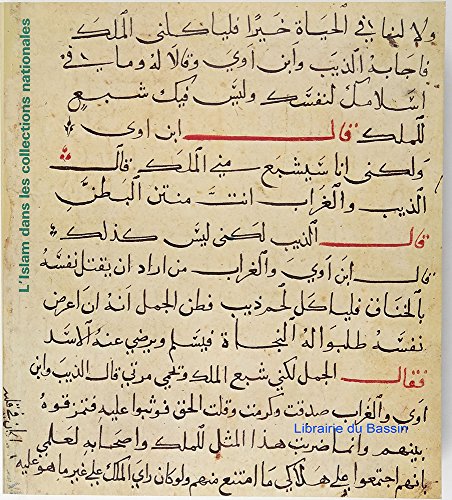 L'Islam dans les collections nationales
ولا لنها في الحياة خيرا فلياكلني الملك
فاجابه الذيب وابن اوي وقالا له وما في
اسلامك لنفسك وليس فيك شبع
للملك قال ابن اوي
ولكني انا سيشبع مني الملك قال
الذيب والغراب انت منتن البطن
قال الذيب لكني ليس كذلك
قال ابن اوي والغراب من اراد ان يقتل نفسه
بالخناق فلياكل لحم ذيب فظن الجمل انه ان اعرض
نفسه طلبوا له النجاة فيسلم ويرضي عنه الاسد
فقال الجمل لكني شبع الملك ولحمي مري قال الذيب وابن
اوي والغراب صدقت وكرمت وقلت الحق فوثبوا عليه فمزقوه
بينهم وانما ضربت هذا المثل للملك واصحابه لعلمي
انهم اجتمعوا على هلاكي ما امتنع منهم ولو كان راي الملك على غير ما هو عليه
Librairie du Bassin